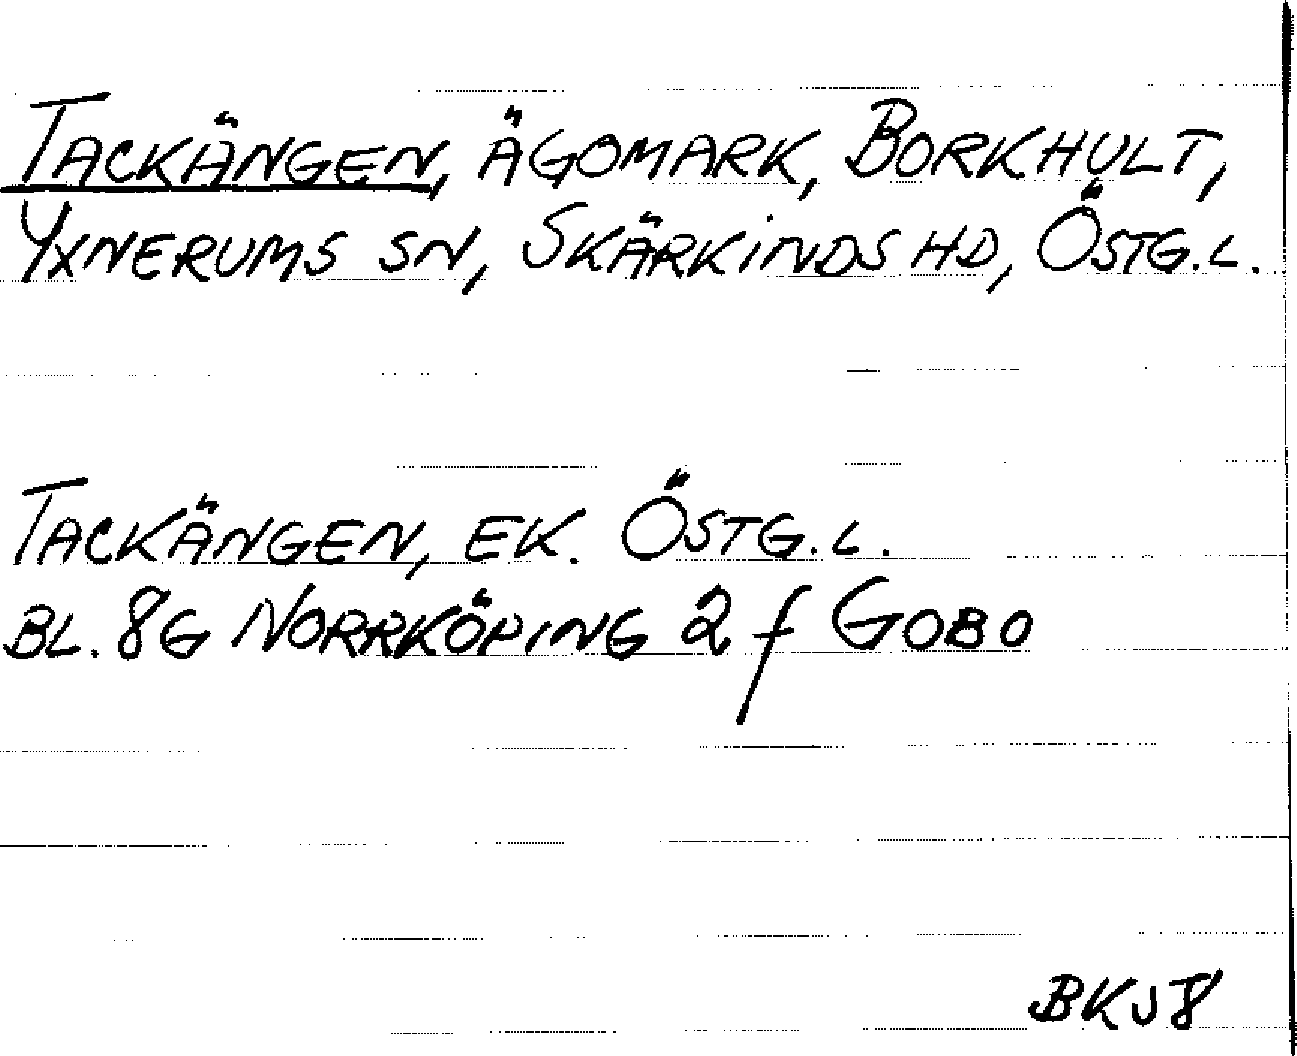 TACKÄNGEN, ÄGOMARK, BORKHULT,
YXNERUMS SN, SKÄRKINDS HD, ÖSTG.L.
TACKÄNGEN, EK. ÖSTG.L.
BL. 8G NORRKÖPING 2 f GOBO